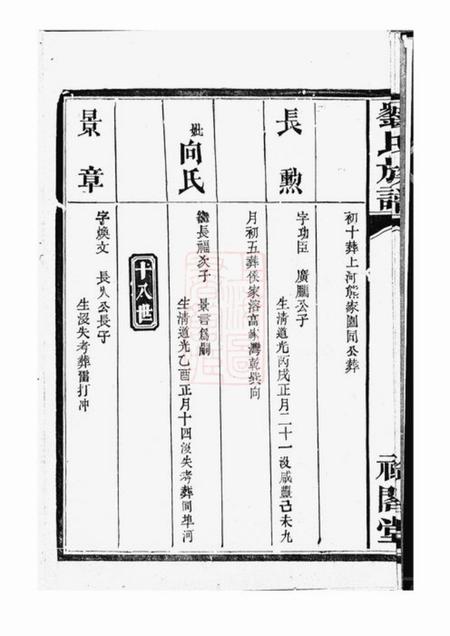 劉氏族譜
禄閣堂
初十葬上河熊家園同公葬
長勲
字功臣 廣鵬公子
生清道光丙戌正月二十一没咸豐己未九
月初五葬侯家溶高 灣乾巽向
妣向氏
繼長福次子 景言爲嗣
生清道光乙酉正月十四没失考葬同埠河
十八世
景章
字煥文 長人公長子
生没失考葬雷打冲